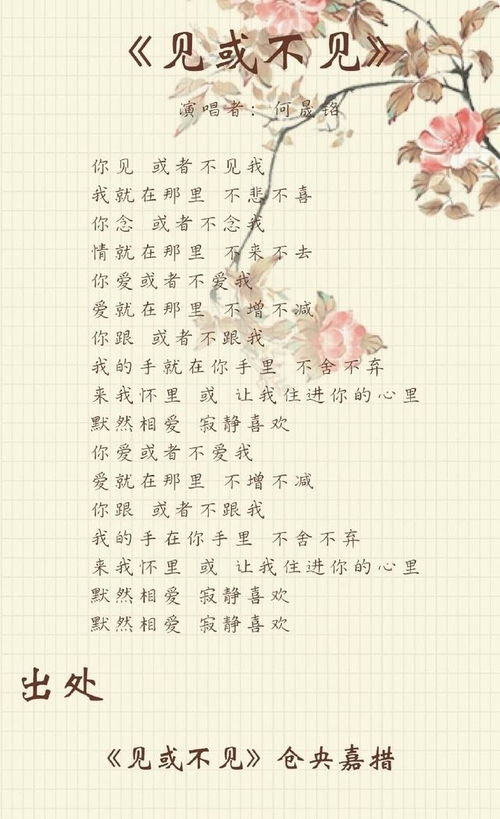 《见或不见》
演唱者：何晟铭
你见 或者不见我
我就在那里 不悲不喜
你念 或者不念我
情就在那里 不来不去
你爱或者不爱我
爱就在那里 不增不减
你跟 或者不跟我
我的手就在你手里 不舍不弃
来我怀里 或 让我住进你的心里
默然相爱 寂静喜欢
你爱或者不爱我
爱就在那里 不增不减
你跟 或者不跟我
我的手在你手里 不舍不弃
来我怀里 或 让我住进你的心里
默然相爱 寂静喜欢
默然相爱 寂静喜欢
出处
《见或不见》仓央嘉措